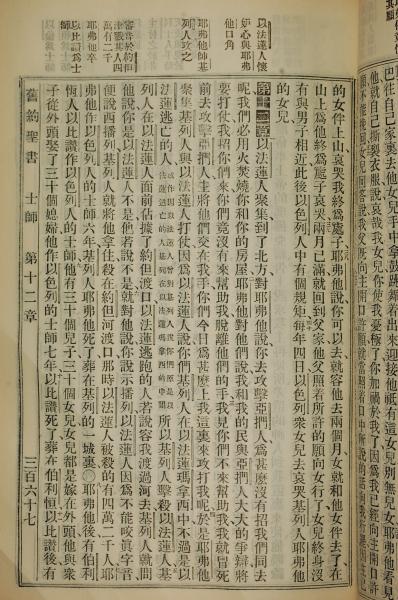 巴往自己家裏去他女兒手中拿鼓跳舞着出來迎接他祇有這女兒別無兒女耶弗他看見
他就自己撕裂衣服說哀哉我女兒你使我憂極了你加禍於我了因爲我已經向主開口許
的女伴上山哀哭我終爲處子耶弗他說你可以去就容他去兩個月女就和他女伴去了在
山上爲他終爲處子哀哭兩月已滿就回到父家他父照着所許的願向女行了女兒終身沒
有與男子相近此後以色列人中有個規矩每年四日以色列衆女兒去哀哭基列人耶弗他
的女兒
以法蓮人懷
妒心與耶弗
他口角
第十二章以法蓮人聚集到了北方對耶弗他說你去攻擊亞捫人爲甚麼沒有招我們同去
呢我們必用火焚燒你和你的房屋耶弗他對他們說我和我的民與亞捫人大大的爭辯將
要打仗我招你們來你們竟沒有來幫助我脫離他們的手我見你們不來幫助我我就冒死
耶弗他師基
列人攻之
前去攻擊亞捫人主將他們交在我手你們今日爲甚麼上我這裏來攻打我呢於是耶弗他
聚集基列人與以法蓮人打仗因爲以法蓮人說你們基列人在以法蓮瑪拿西中不過是以
法蓮逃亡的人所以基列人擊殺以法蓮人基
審音於約但
津戮其人四
萬有二千
列人在以法蓮人面前佔據了約但渡口以法蓮逃跑的人若說容我渡過河去基列人就問
他說你是以法蓮人不是他若說不是就對他說你說示播列以法蓮人因爲不能咬眞字音
便說西播列基列人就將他拿住殺在約但河渡口那時以法蓮人被殺的有四萬二千人耶
耶弗他卒
以比讚爲士
師
弗他作以色列人的士師六年基列人耶弗他死了葬在基列的一城裏○耶弗他後有伯利
恆人以比讚作以色列人的士師他有三十個兒子三十個女兒女兒都是嫁在外頭他與衆
子從外頭娶了三十個媳婦他作以色列的士師七年以比讚死了葬在伯利恆以比讚後有
舊約聖書 士師 第十二章 三百六十七